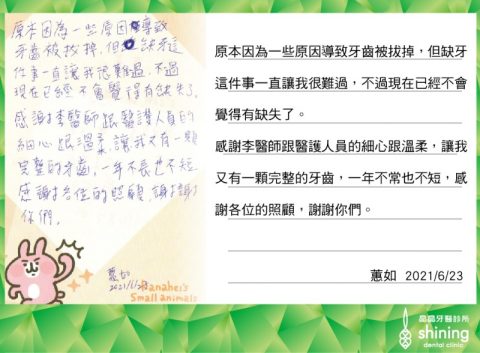 原本因為一些原因導致
牙齒被拔掉,但缺牙這
件事一直讓我很難過,不過
現在已經不會覺得有缺失了。
感謝李醫師跟醫護人員的
細心跟溫柔,讓我又有一顆
完整的牙齒,一年不長也不短,
感謝各位的照顧,謝謝
你們。
蕙如
2021/6/23
Kanahei's
Small animals
原本因為一些原因導致牙齒被拔掉,但缺牙
這件事一直讓我很難過,不過現在已經不會
覺得有缺失了。
感謝李醫師跟醫護人員的細心跟溫柔,讓我
又有一顆完整的牙齒,一年不常也不短,感
謝各位的照顧,謝謝你們。
蕙如 2021/6/23
晶晶牙醫診所
shining
dental clinic